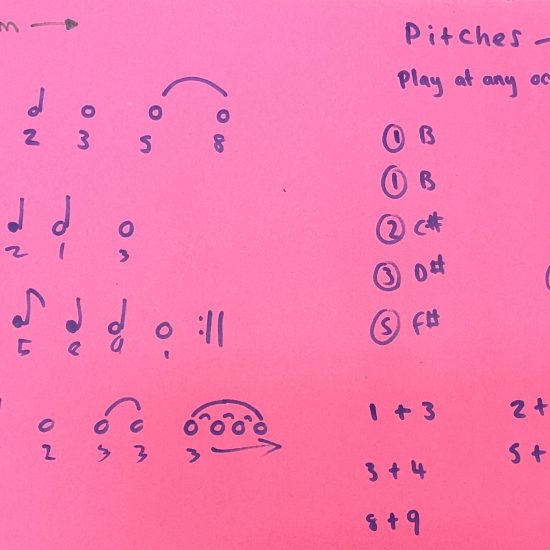 Pitches
Play at any
2 3 5 8
① B
① B
② C#
2 1 3
③ D#
⑤ F#
5 2 0 1
1 + 3
2 +
2 3 3 3
3 + 4
5 +
8 + 9